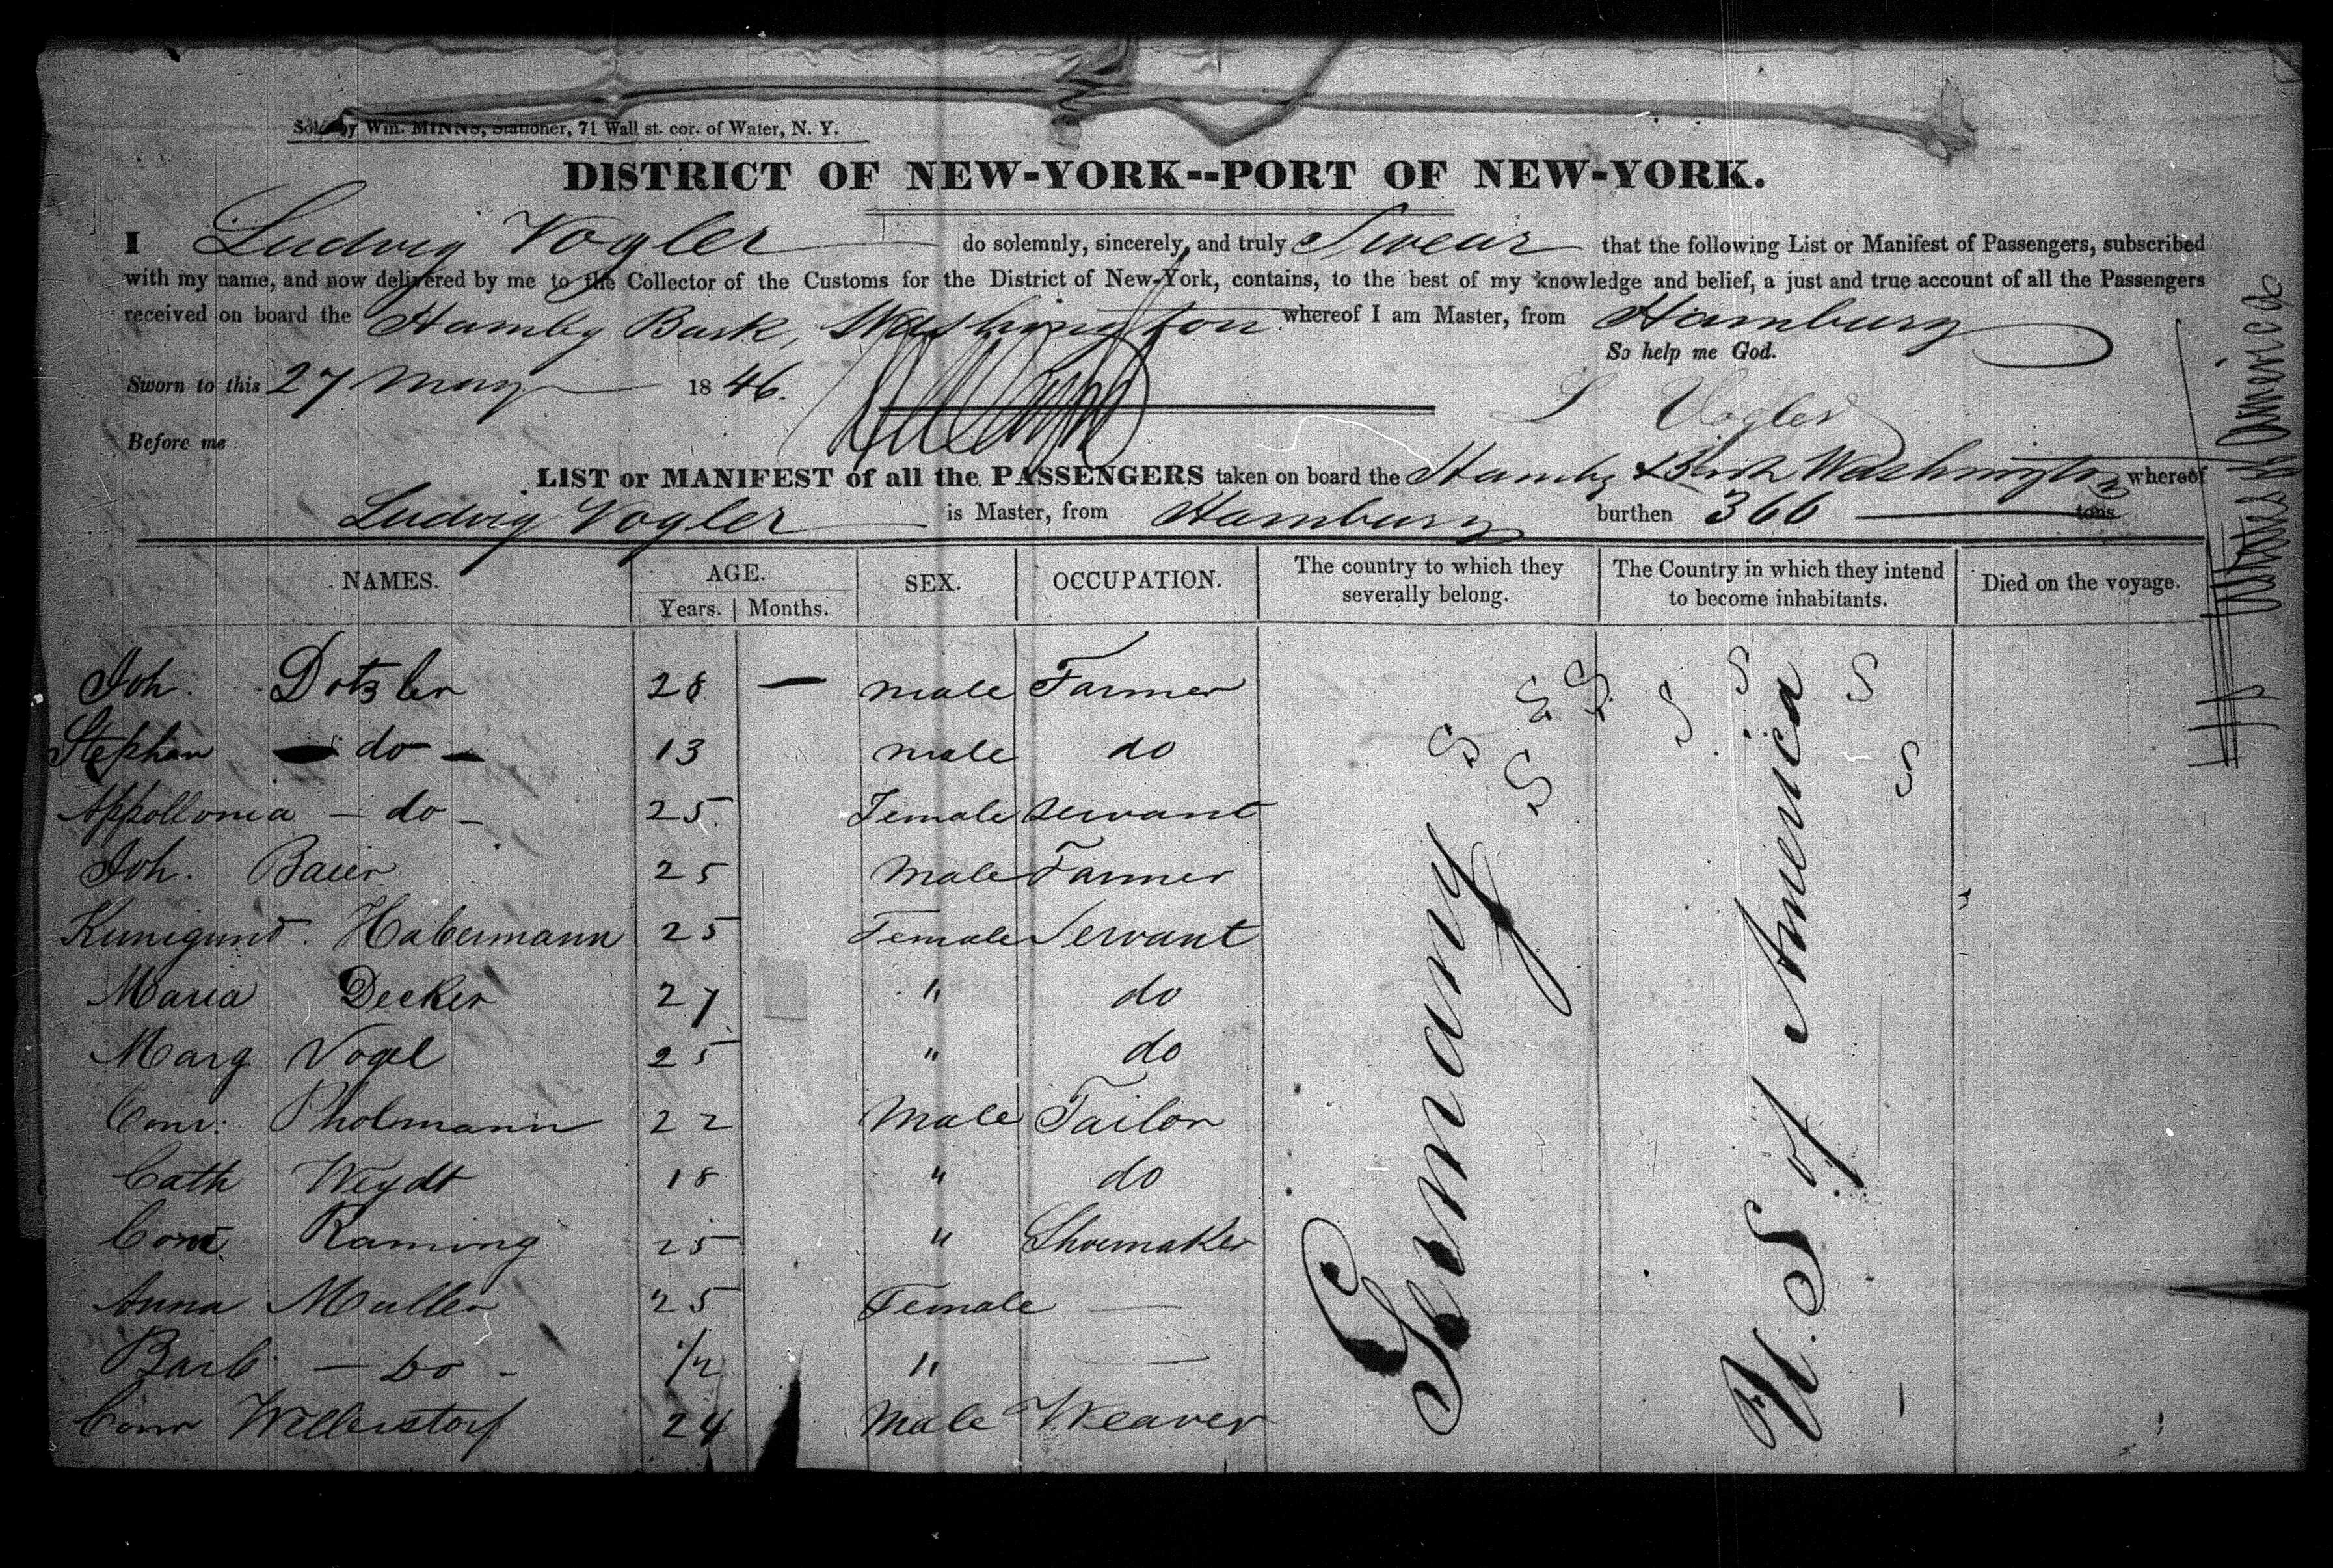 Sold by Wm. MINNS, Stationer, 71 Wall st. cor. of Water, N. Y.
DISTRICT OF NEW-YORK--PORT OF NEW-YORK.
I Ludwig Vogler do solemnly, sincerely, and truly Swear that the following List or Manifest of Passengers, subscribed
with my name, and now delivered by me to the Collector of the Customs for the District of New-York, contains, to the best of my knowledge and belief, a just and true account of all the Passengers
received on board the Hambg Bark, Washington whereof I am Master, from Hamburg
So help me God.
Sworn to this 27 May 1846.
L Vogler
Before me
LIST or MANIFEST of all the PASSENGERS taken on board the Hambg Bark Washington whereof
Ludwig Vogler is Master, from Hamburg burthen 366 tons
NAMES. AGE. SEX. OCCUPATION. The country to which they severally belong. The Country in which they intend to become inhabitants. Died on the voyage.
Years. Months.
Joh. Dotzler 28 — male Farmer
Stephan — do — 13 male do
Appollonia — do — 25 Female servant
Joh. Baier 25 Male Farmer
Kunigund. Habermann 25 Female Servant
Maria Decker 27 " do
Marg Vogel 25 " do
Conr: Pholmann 22 Male Tailor
Cath Weydt 18 " do
Conr. Raming 25 " Shoemaker
Anna Muller 25 Female —
Barb — do - 1/2 " —
Conr Wellerstorf 24 Male Weaver
Germany
U. S of America